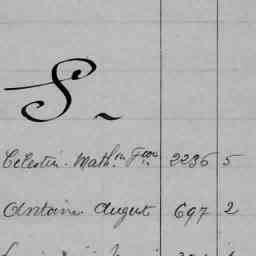 S.
Celestin Math.in Fçois 2236 5
Antoine August 697 2